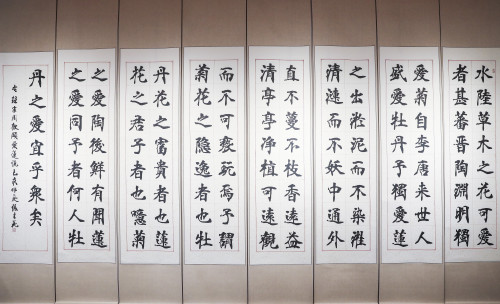 水陸草木之花可愛
者甚蕃晉陶淵明獨
愛菊自李唐來世人
盛愛牡丹予獨愛蓮
之出淤泥而不染濯
清漣而不妖中通外
直不蔓不枝香遠益
清亭亭淨植可遠觀
而不可褻玩焉予謂
菊花之隱逸者也牡
丹花之富貴者也蓮
花之君子者也噫菊
之愛陶後鮮有聞蓮
之愛同予者何人牡
丹之愛宜乎眾矣
宋周敦頤愛蓮說